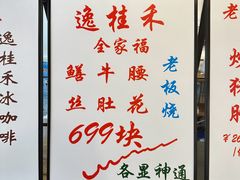 逸桂禾
全家福
鳝牛腰
丝肚花
老板烧
699块
各显神通
逸桂禾冰咖啡
老